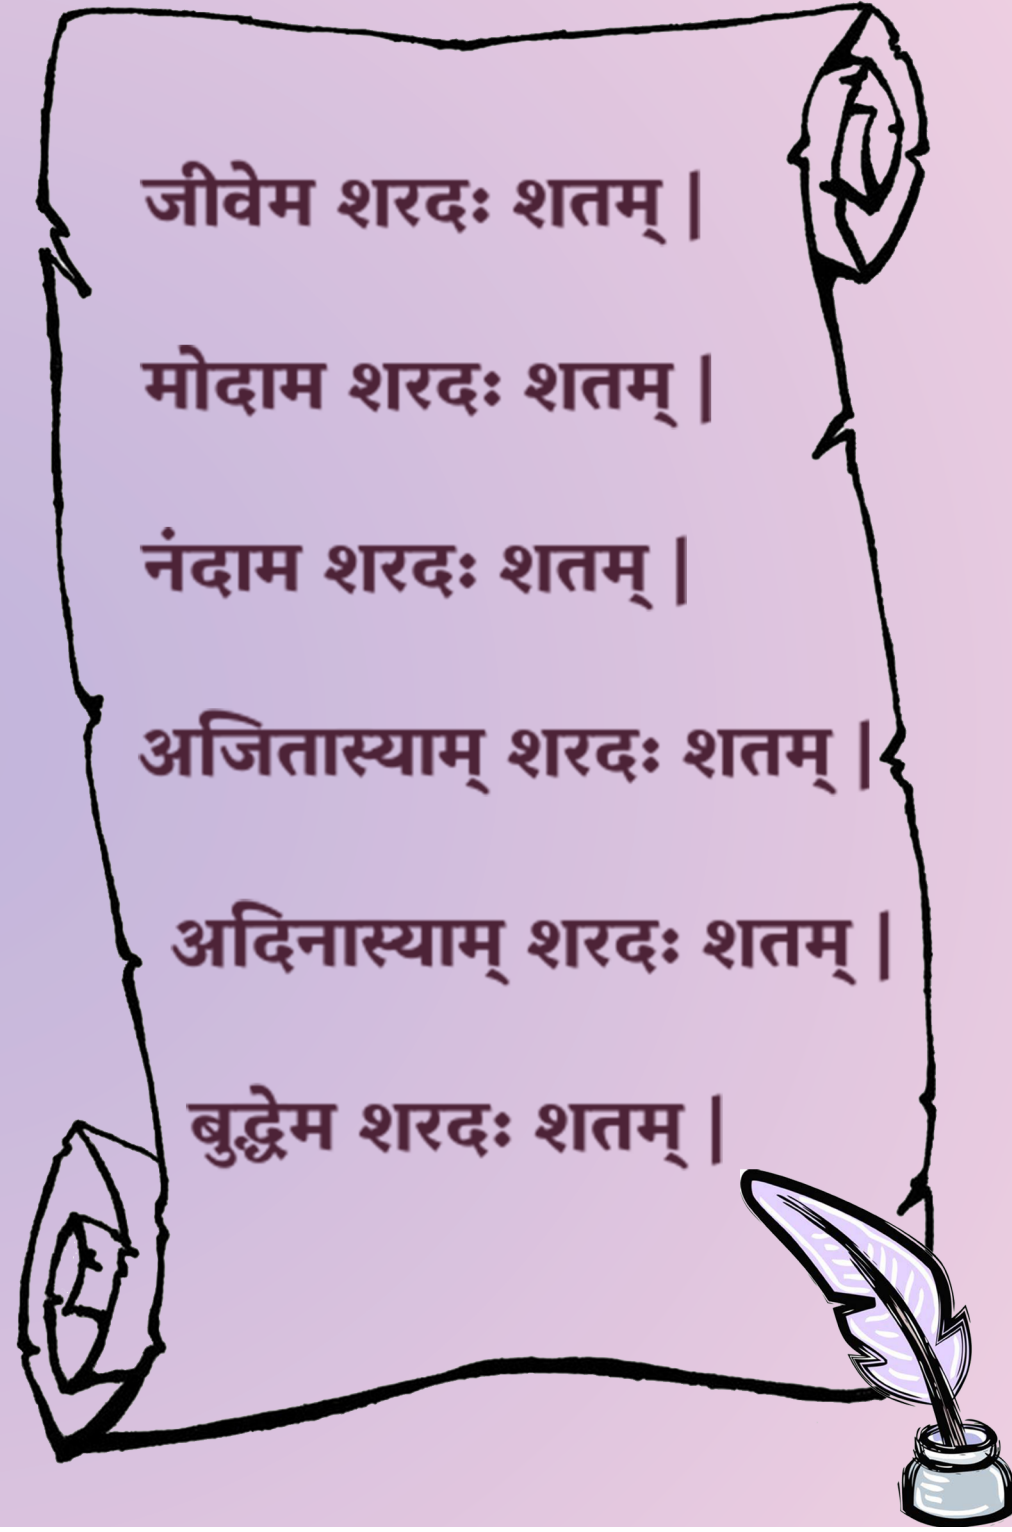 जीवेम शरदः शतम् |
मोदाम शरदः शतम् |
नंदाम शरदः शतम् |
अजितास्याम् शरदः शतम् |
अदिनास्याम् शरदः शतम् |
बुद्धेम शरदः शतम् |